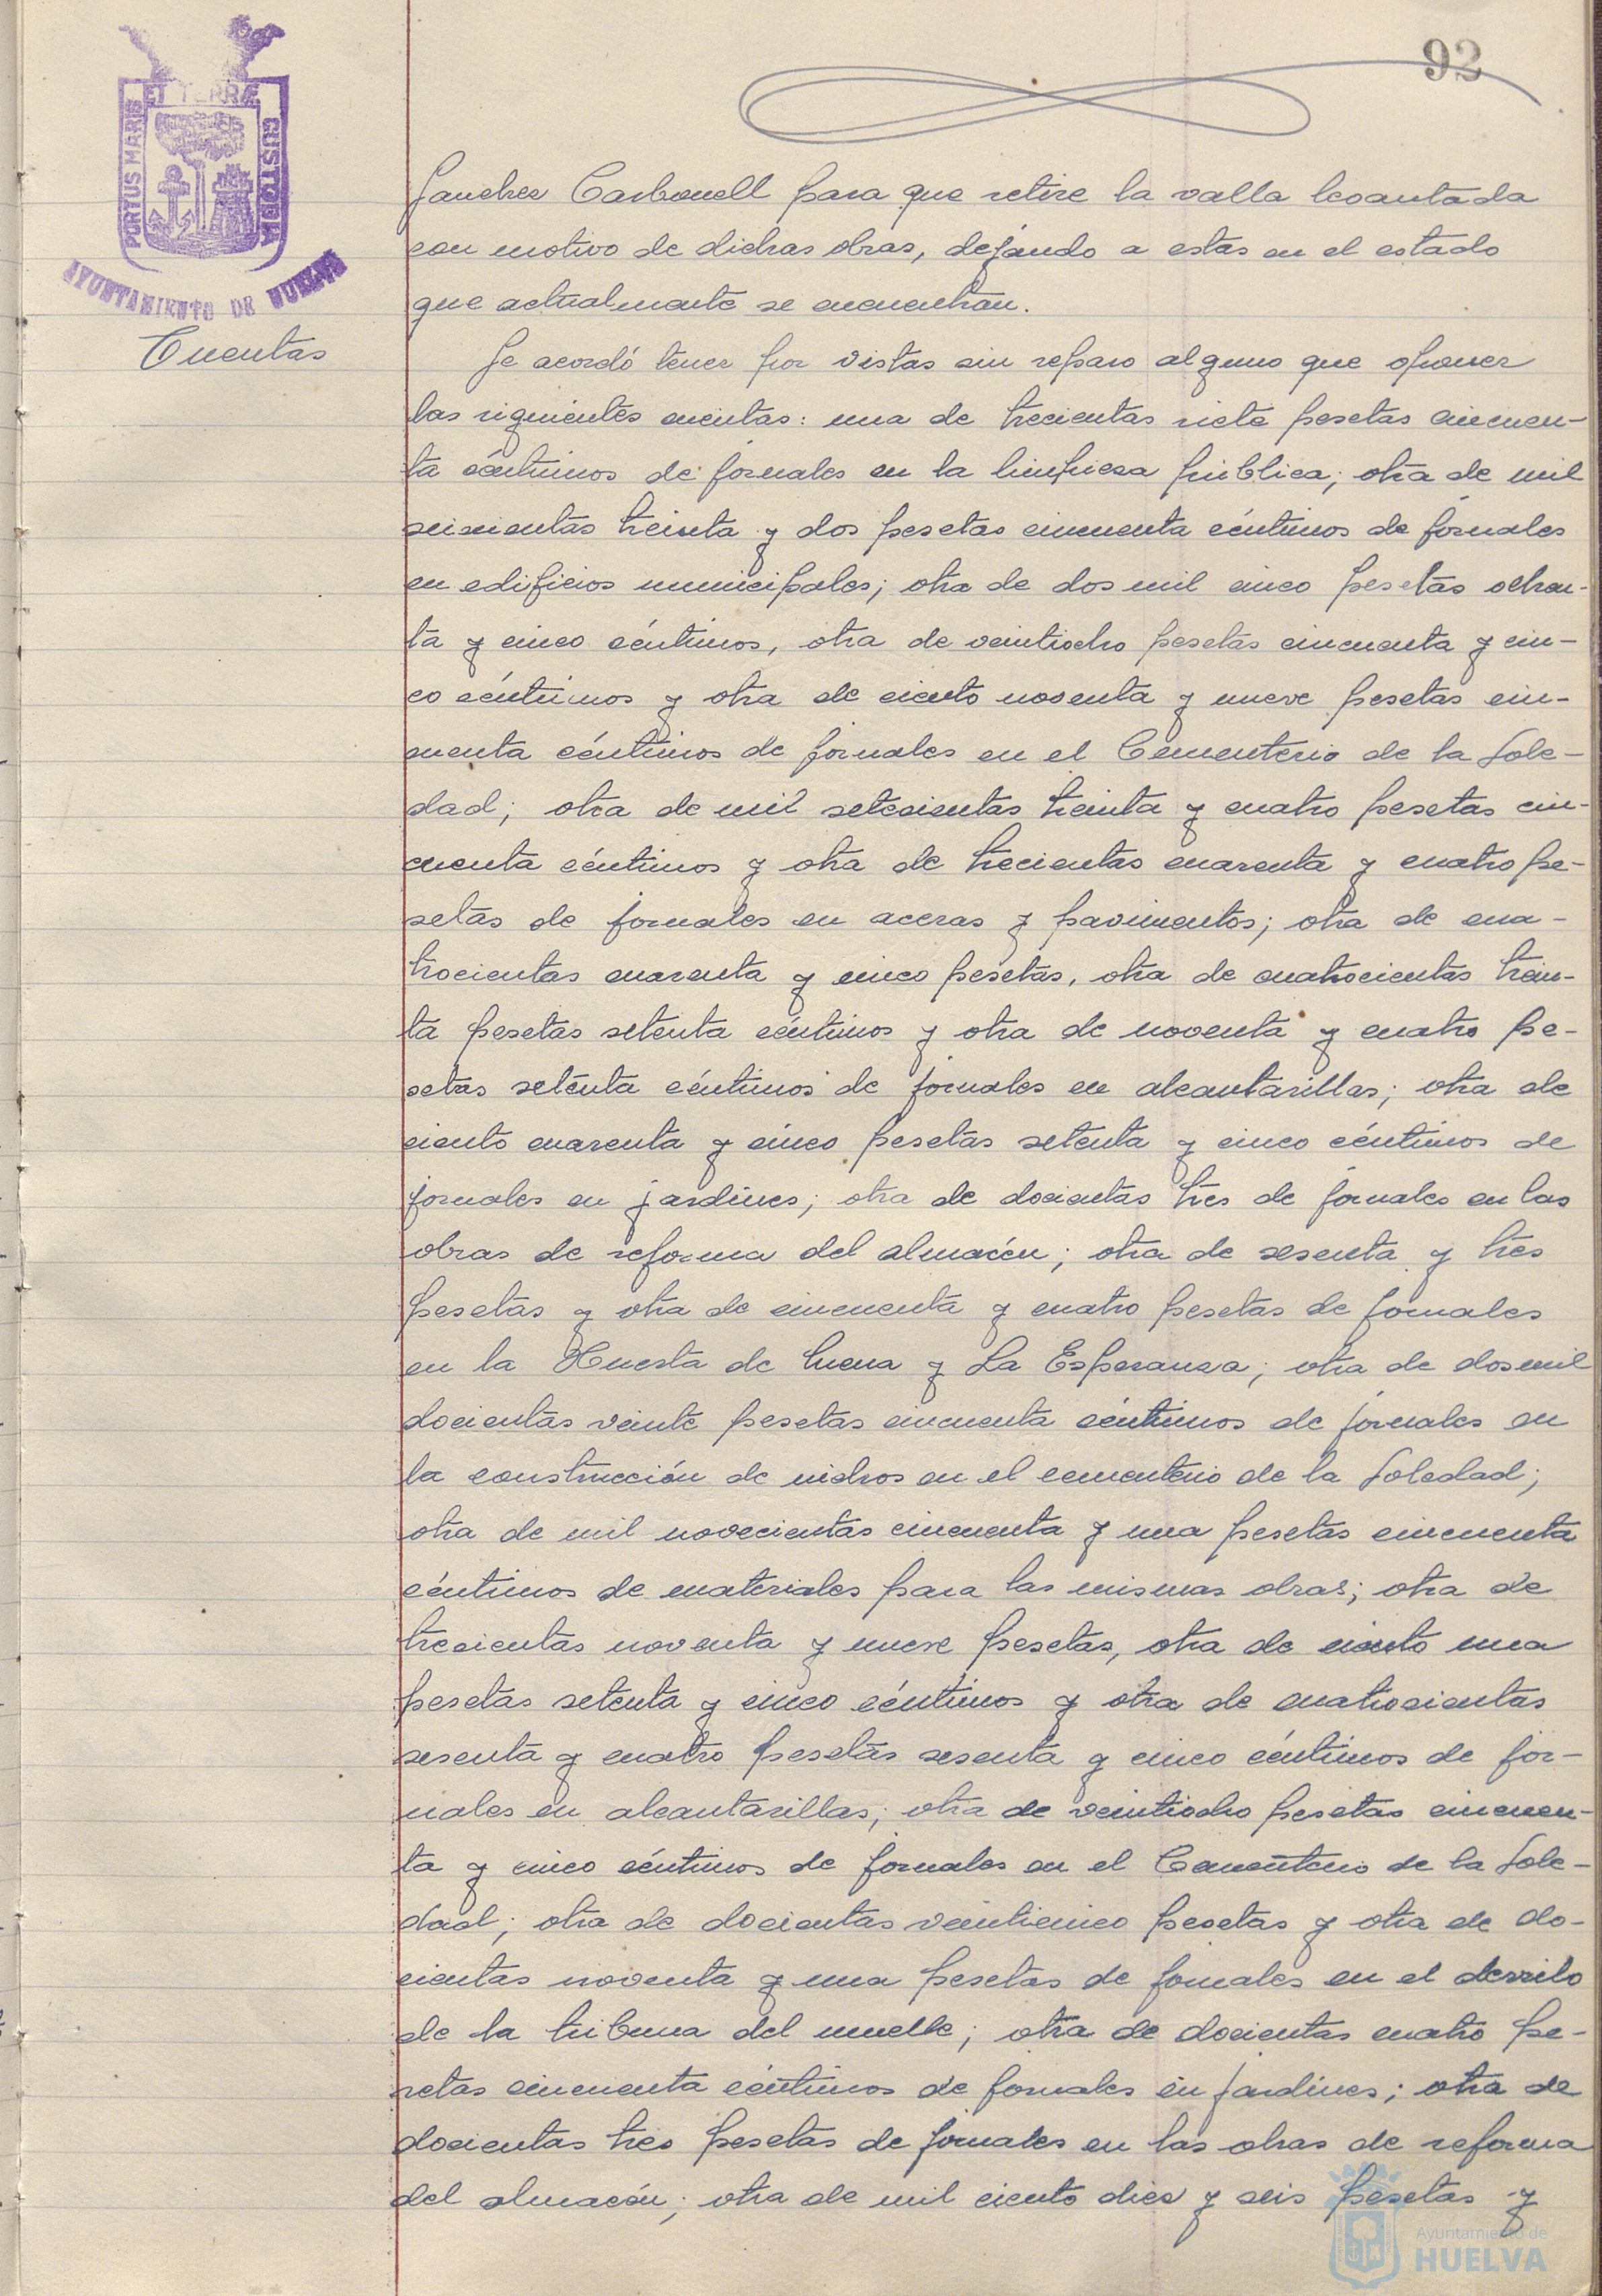 92
PORTUS MARIS
ET TERRÆ
CUSTODIA
AYUNTAMIENTO DE HUELVA
Sanchez Carbonell para que retire la valla levantada
con motivo de dichas obras, dejando a estas en el estado
que actualmente se encuentran.
Cuentas
Se acordó tener por vistas sin reparo alguno que oponer
las siguientes cuentas: una de trecientas siete pesetas cincuen-
ta céntimos de jornales en la limpieza pública; otra de mil
seiscientas treinta y dos pesetas cincuenta céntimos de jornales
en edificios municipales; otra de dos mil cinco pesetas ochen-
ta y cinco céntimos, otra de veintiocho pesetas cincuenta y cin-
co céntimos y otra de ciento noventa y nueve pesetas cin-
cuenta céntimos de jornales en el Cementerio de la Sole-
dad; otra de mil setecientas treinta y cuatro pesetas cin-
cuenta céntimos y otra de trecientas cuarenta y cuatro pe-
setas de jornales en aceras y pavimentos; otra de cua-
trocientas cuarenta y cinco pesetas, otra de cuatrocientas trein-
ta pesetas setenta céntimos y otra de noventa y cuatro pe-
setas setenta céntimos de jornales en alcantarillas; otra de
ciento cuarenta y cinco pesetas setenta y cinco céntimos de
jornales en jardines; otra de docientas tres de jornales en las
obras de reforma del almacén; otra de sesenta y tres
pesetas y otra de cincuenta y cuatro pesetas de jornales
en la Huerta de Mena y La Esperanza; otra de dos mil
docientas veinte pesetas cincuenta céntimos de jornales en
la construcción de nichos en el cementerio de la Soledad;
otra de mil novecientas cincuenta y una pesetas cincuenta
céntimos de materiales para las mismas obras; otra de
trecientas noventa y nueve pesetas, otra de ciento una
pesetas setenta y cinco céntimos y otra de cuatrocientas
sesenta y cuatro pesetas sesenta y cinco céntimos de jor-
nales en alcantarillas; otra de veintiocho pesetas cincuen-
ta y cinco céntimos de jornales en el Cementerio de la Sole-
dad; otra de docientas veinticinco pesetas y otra de do-
cientas noventa y una pesetas de jornales en el derribo
de la tribuna del muelle; otra de docientas cuatro pe-
setas cincuenta céntimos de jornales en jardines; otra de
docientas tres pesetas de jornales en las obras de reforma
del almacén; otra de mil ciento diez y seis pesetas y
Ayuntamiento de
HUELVA